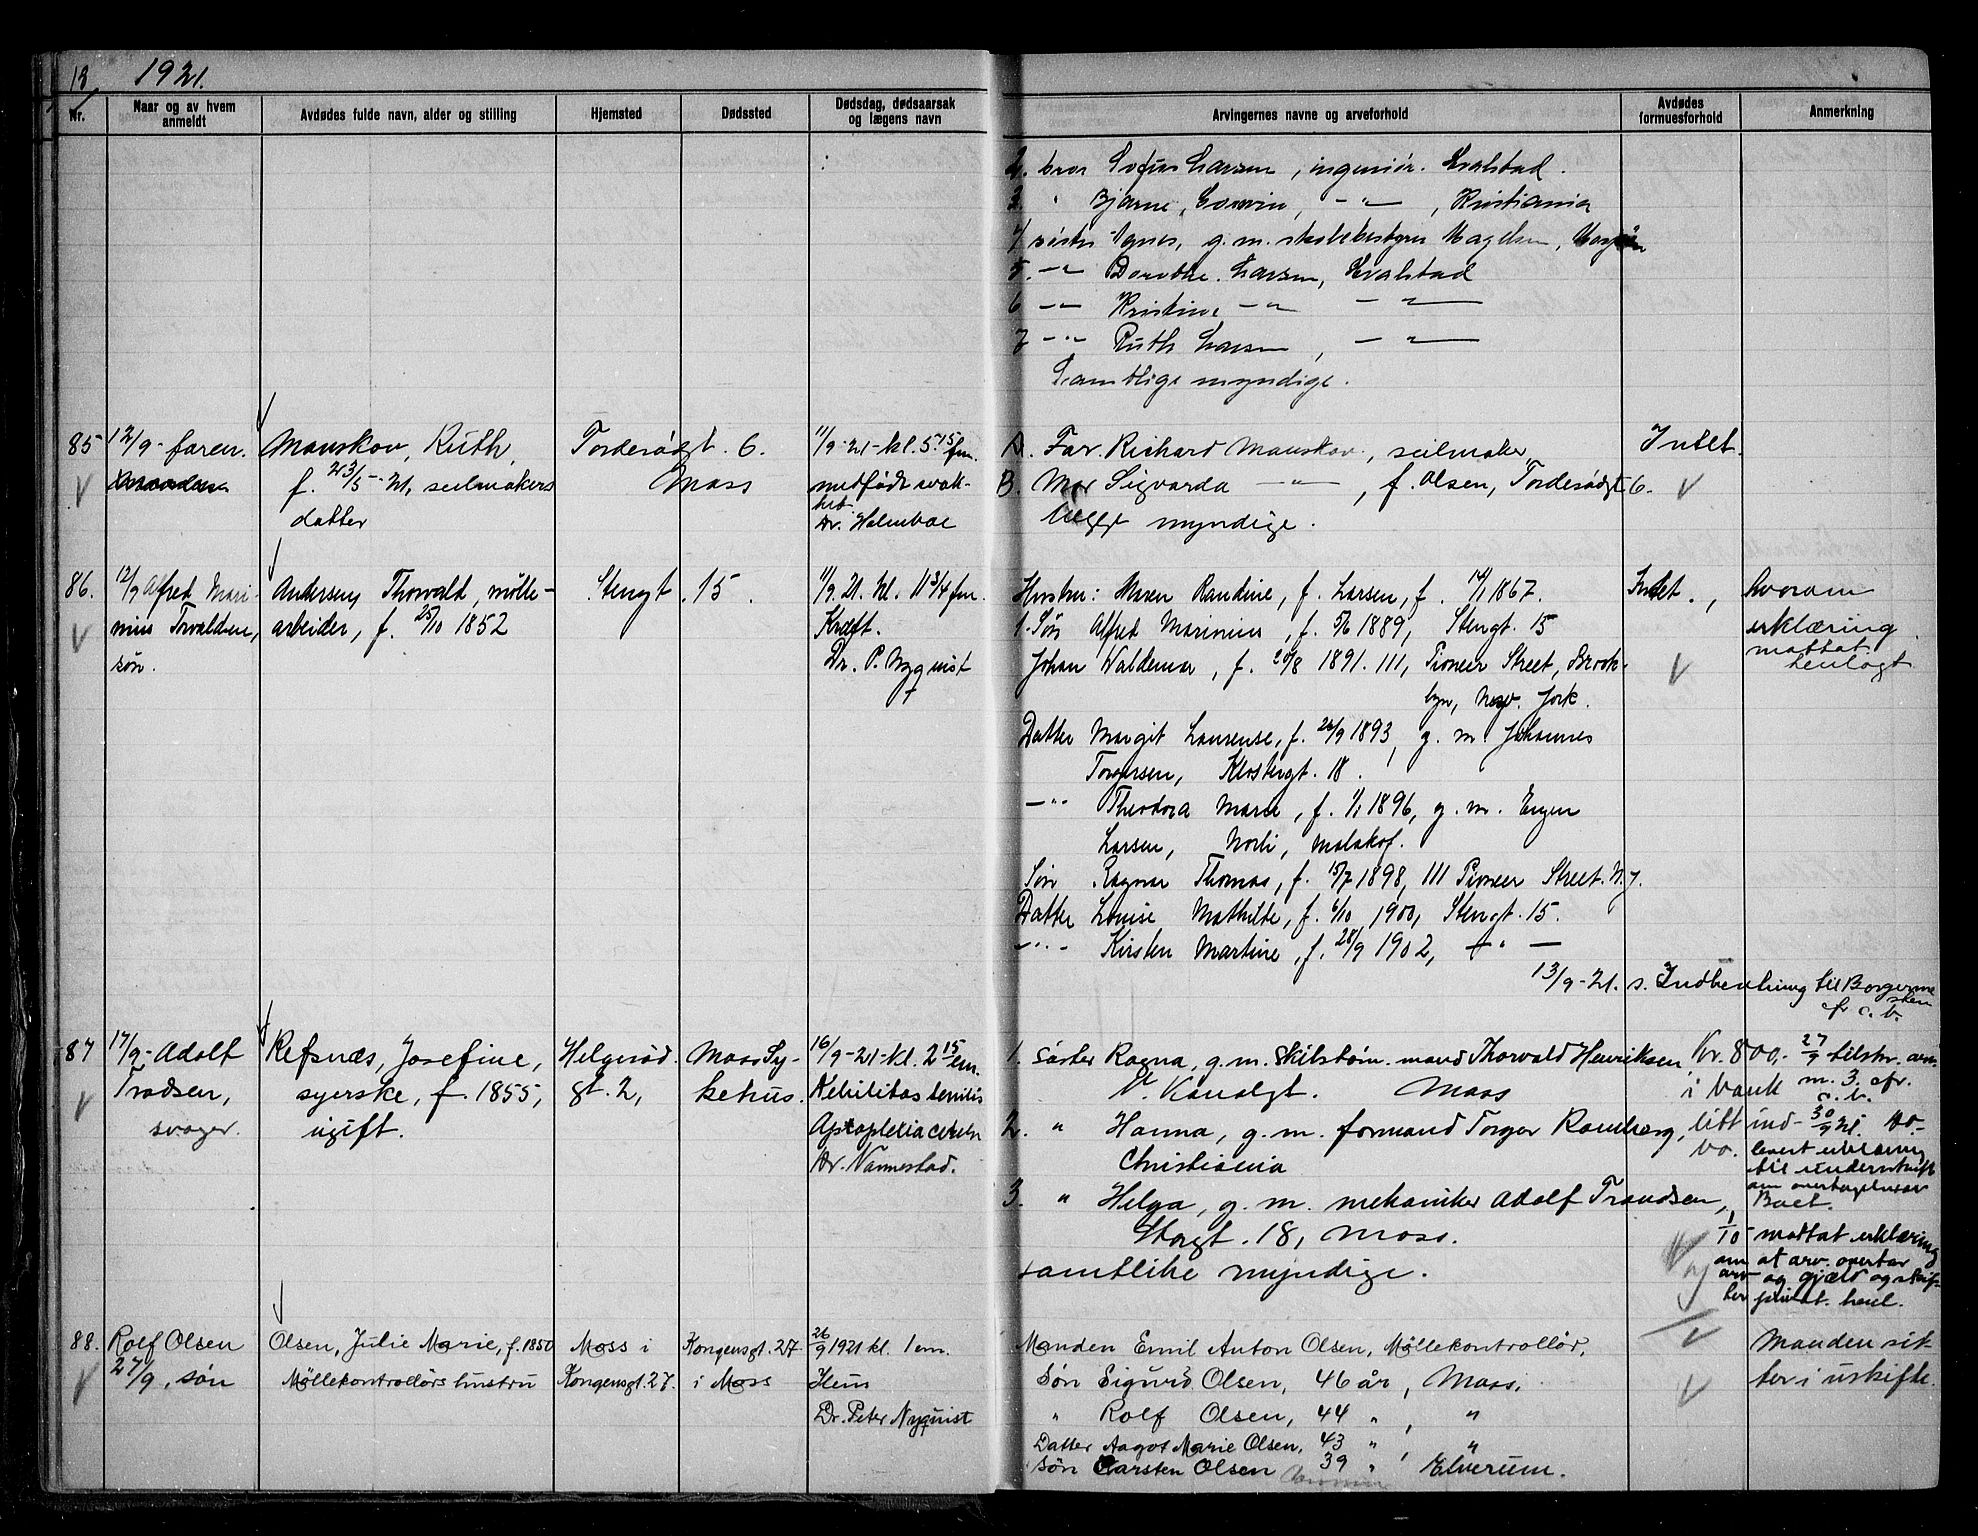 12
1921.
Nr.
Naar og av hvem anmeldt
Avdødes fulde navn, alder og stilling
Hjemsted
Dødssted
Dødsdag, dødsaarsak og lægens navn
Arvingernes navne og arveforhold
Avdødes formuesforhold
Anmerkning
2. bror Sofus Larsen, ingeniør. Hvalstad.
3. " Bjarne, " — , Kristiania
4 søster Agnes, g. m. skolebestyrer
5. —"— Dorothe Larsen, Hvalstad
6 —"— Kristine —"— —"—
7 —"— Ruth Larsen, —"—
Samtlige myndige.
85 12/9- faren.
Manskov, Ruth,
f. 23/5-21, seilmakers
datter
Tordesødgt. 6.
Moss
11/9-21- kl. 5.15 fm.
medfødt svak-
het
Dr. Holmboe
A. Far. Richard Manskov, seilmaker,
B. Mor Sigvarda —"—, f. Olsen, Tordesødgt 6.
begge myndige.
Intet.
86. 12/9 Alfred Mari-
nius Torvaldsen,
søn.
Andersen, Thorvald, mølle-
arbeider, f. 25/10 1852
Stengt. 15.
11/9.21. kl. 11 3/4 fm.
Kræft.
Dr. P. Nyquist
Hustru: Maren Randine, f. Larsen, f. 14/1 1867.
1. Søn Alfred Marinius, f. 5/6 1889, Stengt. 15
Johan Waldemar, f. 20/8 1891. 111, Pioneer Street, Brook-
lyn, New. York.
Datter Margit Laurense, f. 24/9 1893, g. m. Johannes
Torgersen, Klostergt. 18.
—"— Theodora Marie, f. 1/1 1896, g. m. Eugen
Larsen, Norli, Malakof.
Søn Ragnar Thomas, f. 15/7 1898, 111 Pioneer Street. N.y.
Datter Louise Mathilde, f. 6/10 1900, Stengt. 15.
—"— Kirsten Martine, f. 28/9 1902, —"—
Intet.
hvorom
erklæring
mottat
henlagt
13/9-21. s. Indberetning til
cfr c. b.
87 17/9- Adolf
Trodsen,
svoger.
Refsnæs, Josefine,
syerske, f. 1855,
ugift.
Helgerød-
gt. 2,
Moss Sy-
kehus.
16/9-21- kl. 2 15 em.
Debilitas senilis
Apoplexia cerebri
Dr. Vannestad.
1. søster Ragna, g. m. Thorvald Henriksen,
V. Kanalgt. Moss
2. " Hanna, g. m. formand Torger Ramberg,
Christiania
3. " Helga, g. m. mekaniker Adolf Trandsen,
Storgt. 18, Moss.
samtlike myndige.
Kr. 800,-
i bank
litt ind-
bo.
27/9 tilskr. arv.
m. 3. cfr.
c. b.
30/9 21.
levert erklæring
til underskrift
om overtagelse av
Boet.
1/10 mottat erklæring
om at arv. overtar
arv og gjæld og skif-
ter privat. henl.
88. Rolf Olsen
27/9, søn
Olsen, Julie Marie, f. 1850
Møllekontrollørs hustru
Moss i
Kongensgt. 27.
Kongensgt. 27
i Moss
26/9 1921 kl. 1 em.
Ileus
Dr. Peter Nyquist
Manden Emil Anton Olsen, Møllekontrollør,
Søn Sigurd Olsen, 46 år, Moss.
" Rolf Olsen, 44 ", "
Datter Aagot Marie Olsen, 43 ", "
Søn Carsten Olsen 39 ", Elverum.
Manden sit-
ter i uskifte.